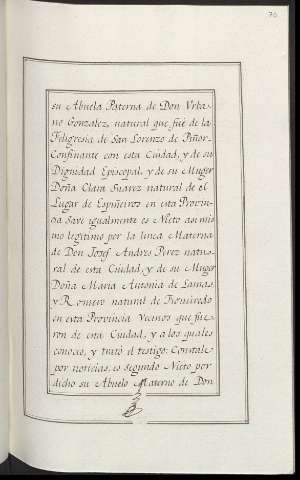 70
su Abuela Paterna de Don Urba-
no Gonzalez, natural que fué de la
Feligresia de San Lorenzo de Piñor
Confinante con esta Ciudad, y de su
Dignidad Episcopal, y de su Muger
Doña Clara Suarez natural de el
Lugar de Espiñeiros en esta Provin-
cia Save igualmente es Nieto asimis
mo legitimo por la linea Materna
de Don Josef Andres Perez natu-
ral de esta Ciudad, y de su Muger
Doña Maria Antonia de Lamas,
y Romero natural de Figueiredo
en esta Provincia Vecinos que fue
ron de esta Ciudad, y a los quales
conoció, y trató el testigo: Constale
por noticias, es segundo Nieto por
dicho su Abuelo Materno de Don